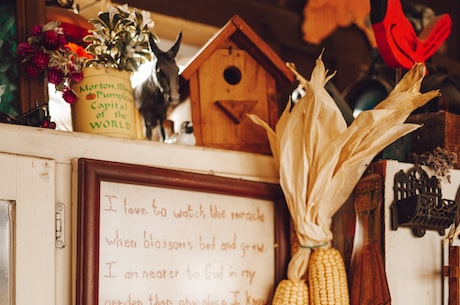 Morton, Illinois
Pumpkin
Capital of
the WORLD
I love to watch the miracle
when blossoms bud and grow
I am nearer to God in my
garden than any place I know